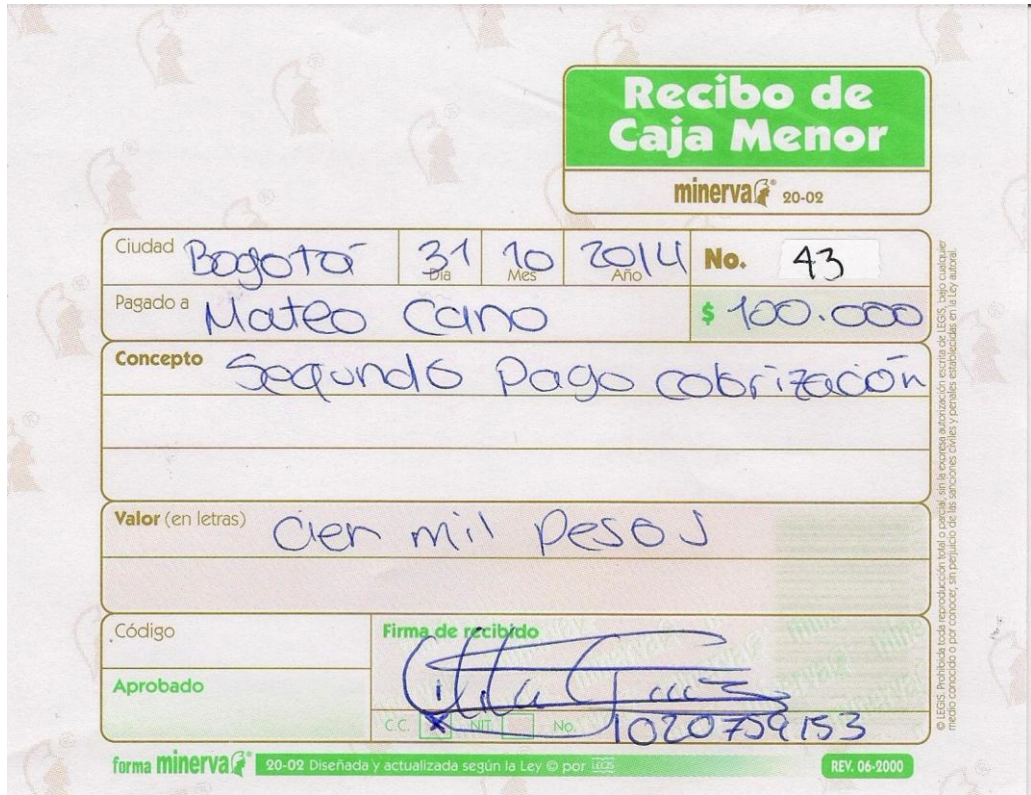 Recibo de
Caja Menor
minerva® 20-02
Ciudad Bogotá 31 Día 10 Mes 2014 Año No. 43
Pagado a Mateo Cano $ 100.000
Concepto Segundo pago colorización
Valor (en letras) cien mil pesos
Código
Firma de recibido
Aprobado
C.C. X NIT No. 1020759153
forma minerva® 20-02 Diseñada y actualizada según la Ley © por LEGIS REV. 06-2000
© LEGIS. Prohibida toda reproducción total o parcial, sin la expresa autorización escrita de LEGIS, bajo cualquier
medio conocido o por conocer, sin perjuicio de las sanciones civiles y penales establecidas en la Ley autoral.